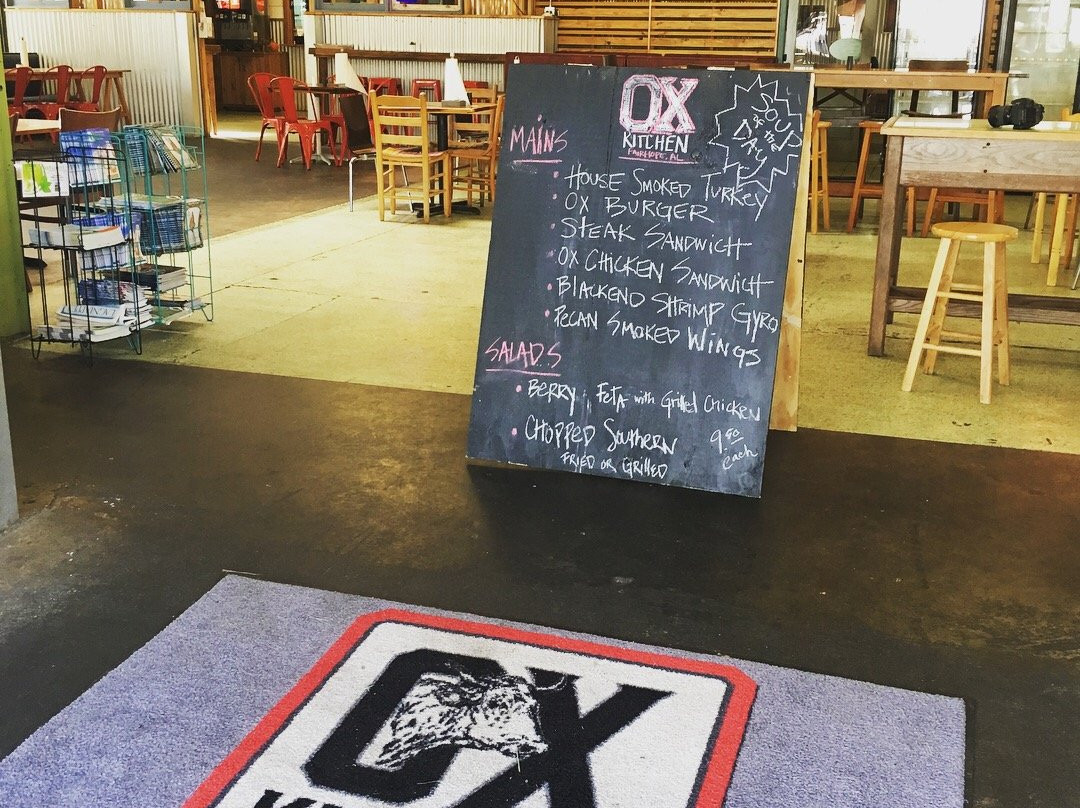 OX
KITCHEN
FAIRHOPE, AL
SOUP
of the
DAY
MAINS
HOUSE SMOKED TURKEY
OX BURGER
STEAK SANDWICH
OX CHICKEN SANDWICH
BLACKEND SHRIMP GYRO
PECAN SMOKED WINGS
SALADS
BERRY, FETA with Grilled Chicken
CHOPPED Southern
FRIED OR GRILLED
9.50
each
OX